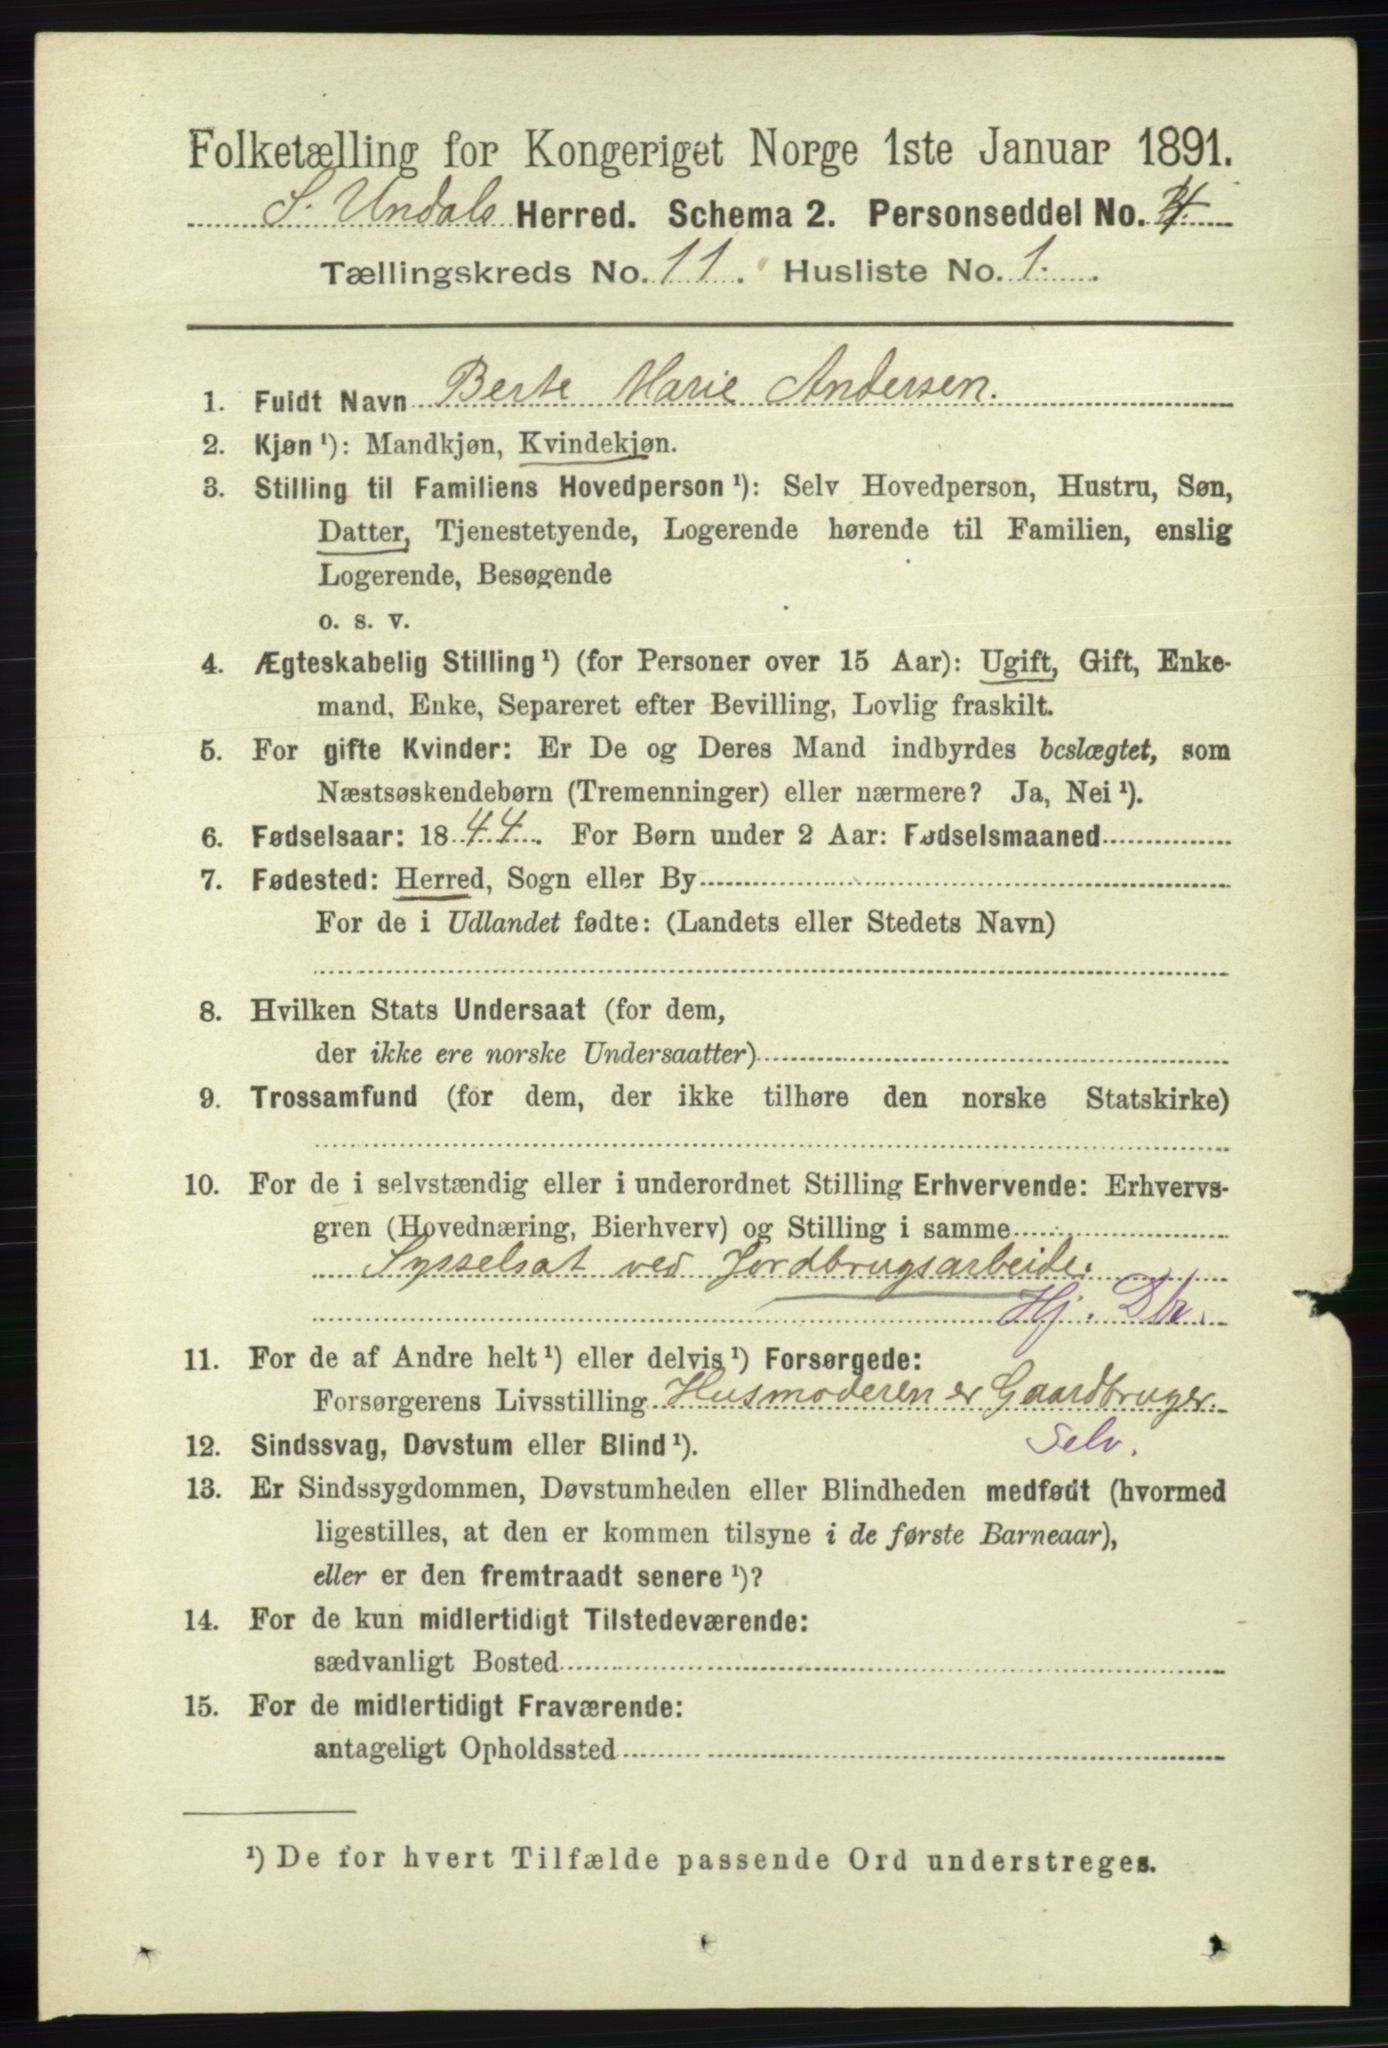 Folketælling for Kongeriget Norge 1ste Januar 1891.
S. Undals Herred. Schema 2. Personseddel No. 4.
Tællingskreds No. 11. Husliste No. 1.
1. Fuldt Navn Berte Marie Andersen.
2. Kjøn ¹): Mandkjøn, Kvindekjøn.
3. Stilling til Familiens Hovedperson ¹): Selv Hovedperson, Hustru, Søn,
Datter, Tjenestetyende, Logerende hørende til Familien, enslig
Logerende, Besøgende
o. s. v.
4. Ægteskabelig Stilling ¹) (for Personer over 15 Aar): Ugift, Gift, Enke-
mand, Enke, Separeret efter Bevilling, Lovlig fraskilt.
5. For gifte Kvinder: Er De og Deres Mand indbyrdes beslægtet, som
Næstsøskendebørn (Tremenninger) eller nærmere? Ja, Nei ¹).
6. Fødselsaar: 1844. For Børn under 2 Aar: Fødselsmaaned
7. Fødested: Herred, Sogn eller By
For de i Udlandet fødte: (Landets eller Stedets Navn)
8. Hvilken Stats Undersaat (for dem,
der ikke ere norske Undersaatter)
9. Trossamfund (for dem, der ikke tilhøre den norske Statskirke)
10. For de i selvstændig eller i underordnet Stilling Erhvervende: Erhvervs-
gren (Hovednæring, Bierhverv) og Stilling i samme
Sysselsat ved Jordbrugsarbeide.
Hj. Dtr.
11. For de af Andre helt ¹) eller delvis ¹) Forsørgede:
Forsørgerens Livsstilling Husmoderen er Gaardbruger.
12. Sindssvag, Døvstum eller Blind ¹). Selv.
13. Er Sindssygdommen, Døvstumheden eller Blindheden medfødt (hvormed
ligestilles, at den er kommen tilsyne i de første Barneaar),
eller er den fremtraadt senere ¹)?
14. For de kun midlertidigt Tilstedeværende:
sædvanligt Bosted
15. For de midlertidigt Fraværende:
antageligt Opholdssted
¹) De for hvert Tilfælde passende Ord understreges.